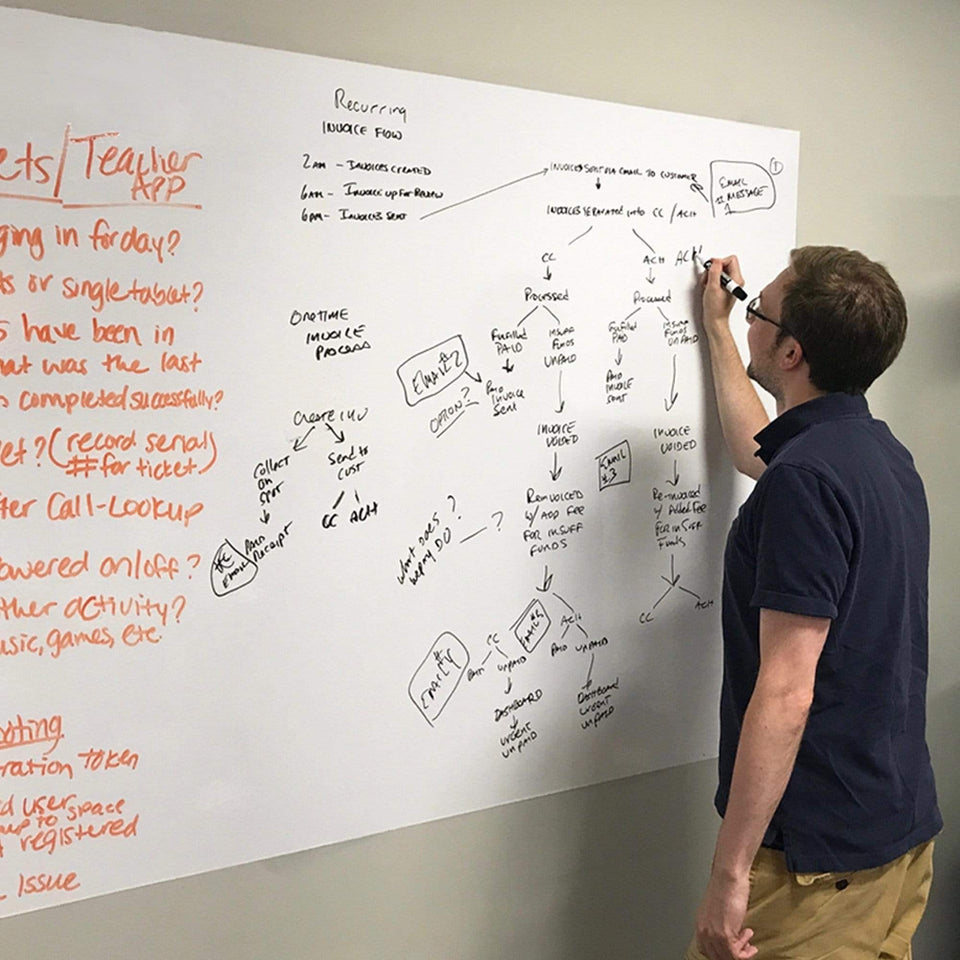 ets/Teacher
APP
ging in for day?
ts or single tablet?
s have been in
hat was the last
completed successfully?
let? (record serial
# for ticket)
fter Call-Lookup
owered on/off?
ther activity?
usic, games, etc.
oting
ration Token
d user
up to space
registered
Issue
Recurring
INVOICE FLOW
2AM - INVOICES CREATED
6AM - INVOICE UP FOR REVIEW
6PM - INVOICES SENT
INVOICES SENT VIA EMAIL TO CUSTOMER
1
EMAIL
MESSAGE
1
INVOICES SEPARATED INTO CC / ACH
CC
Processed
Fulfilled
PAID
INSUFF
FUNDS
UNPAID
EMAIL #2
OPTION?
PAID
INVOICE
SENT
INVOICE
VOIDED
REINVOICED
W/ ADD FEE
FOR INSUFF
FUNDS
What does
repay DO?
?
CC
PAID
UNPAID
EMAIL #4
DASHBOARD
URGENT
UNPAID
ACH
PAID
UNPAID
EMAIL #5
DASHBOARD
URGENT
UNPAID
ACH
ACH
Processed
Fulfilled
PAID
INSUFF
FUNDS
UNPAID
PAID
INVOICE
SENT
INVOICE
VOIDED
EMAIL
#3
Re-invoiced
w/ Added Fee
FOR INSUFF
Funds
CC
ACH
ONETIME
INVOICE
PROCESS
Create INV
Collect
ON
SPOT
PAID
Receipt
EMAIL
Send to
CUST
CC
ACH